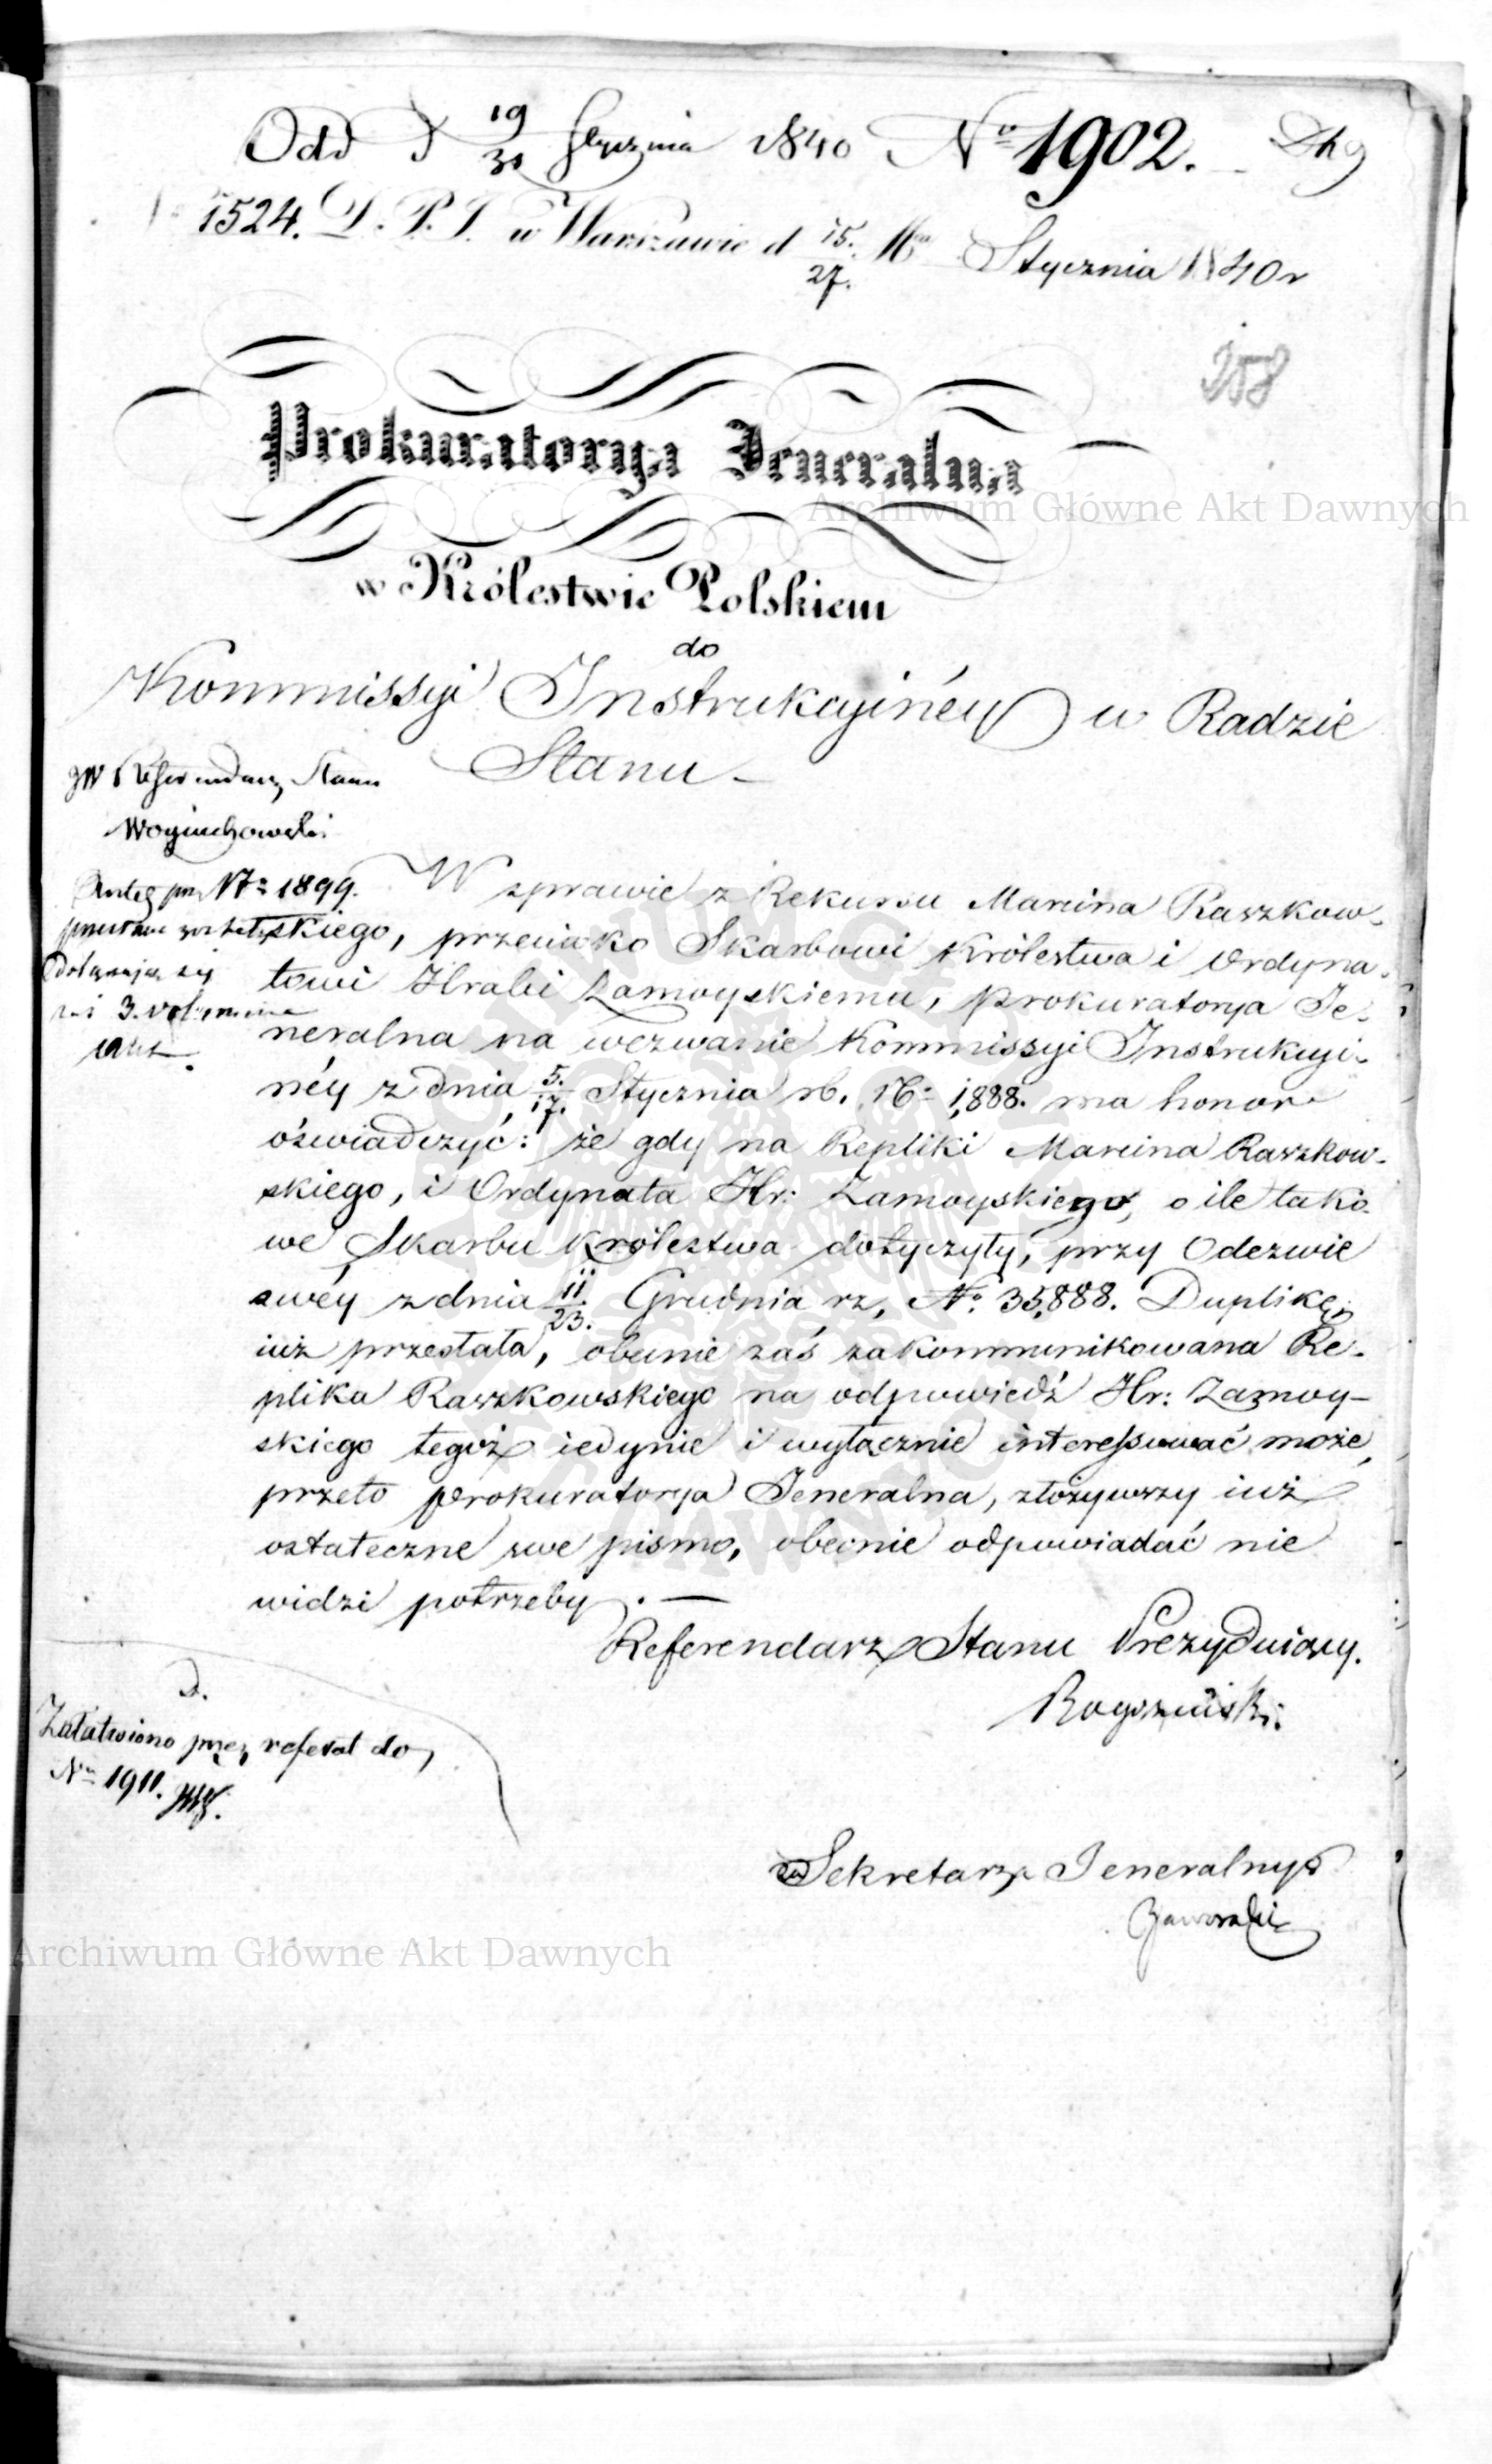 Odd d 19/31 Stycznia 1840 No 1902.
1524. D. P. J. w Warszawie d 15./27. Mca Stycznia 1840 r
158
Prokuratorya Jeneralna
w Królestwie Polskiem
do
Kommissyi Instrukcyinéy w Radzie
Stanu
JW Referendarz Stanu
Woyciechowski
Antec pm No 1899.
dołączaią się
3. volumina
akt.
W sprawie z Rekursu Marcina Raszkow-
skiego, przeciwko Skarbowi Królestwa i Ordyna-
towi Hrabi Zamoyskiemu, Prokuratorya Je-
neralna na wezwanie Kommissyi Instrukcyi-
néy z dnia 5./17. Stycznia rb. No 1,888. ma honor
oświadczyć: że gdy na Repliki Marcina Raszkow-
skiego, i Ordynata Hr: Zamoyskiego, o ile tako-
we Skarbu Królestwa dotyczyły, przy Odezwie
swéy z dnia 11/23. Grudnia rz, No. 35,888. Duplikę
iuż przesłała, obecnie zaś zakommunikowana Re-
plika Raszkowskiego na odpowiedź Hr: Zamoy-
skiego tegoż iedynie i wyłącznie interessować może,
przeto Prokuratorya Jeneralna, złożywszy iuż
ostateczne swe pismo, obecnie odpowiadać nie
widzi potrzeby. —
Referendarz Stanu Prezyduiący.
D.
Załatwiono przez referat do
No 1911.
za Sekretarza Jeneralnego
Jaworski
Archiwum Główne Akt Dawnych
Archiwum Główne Akt Dawnych